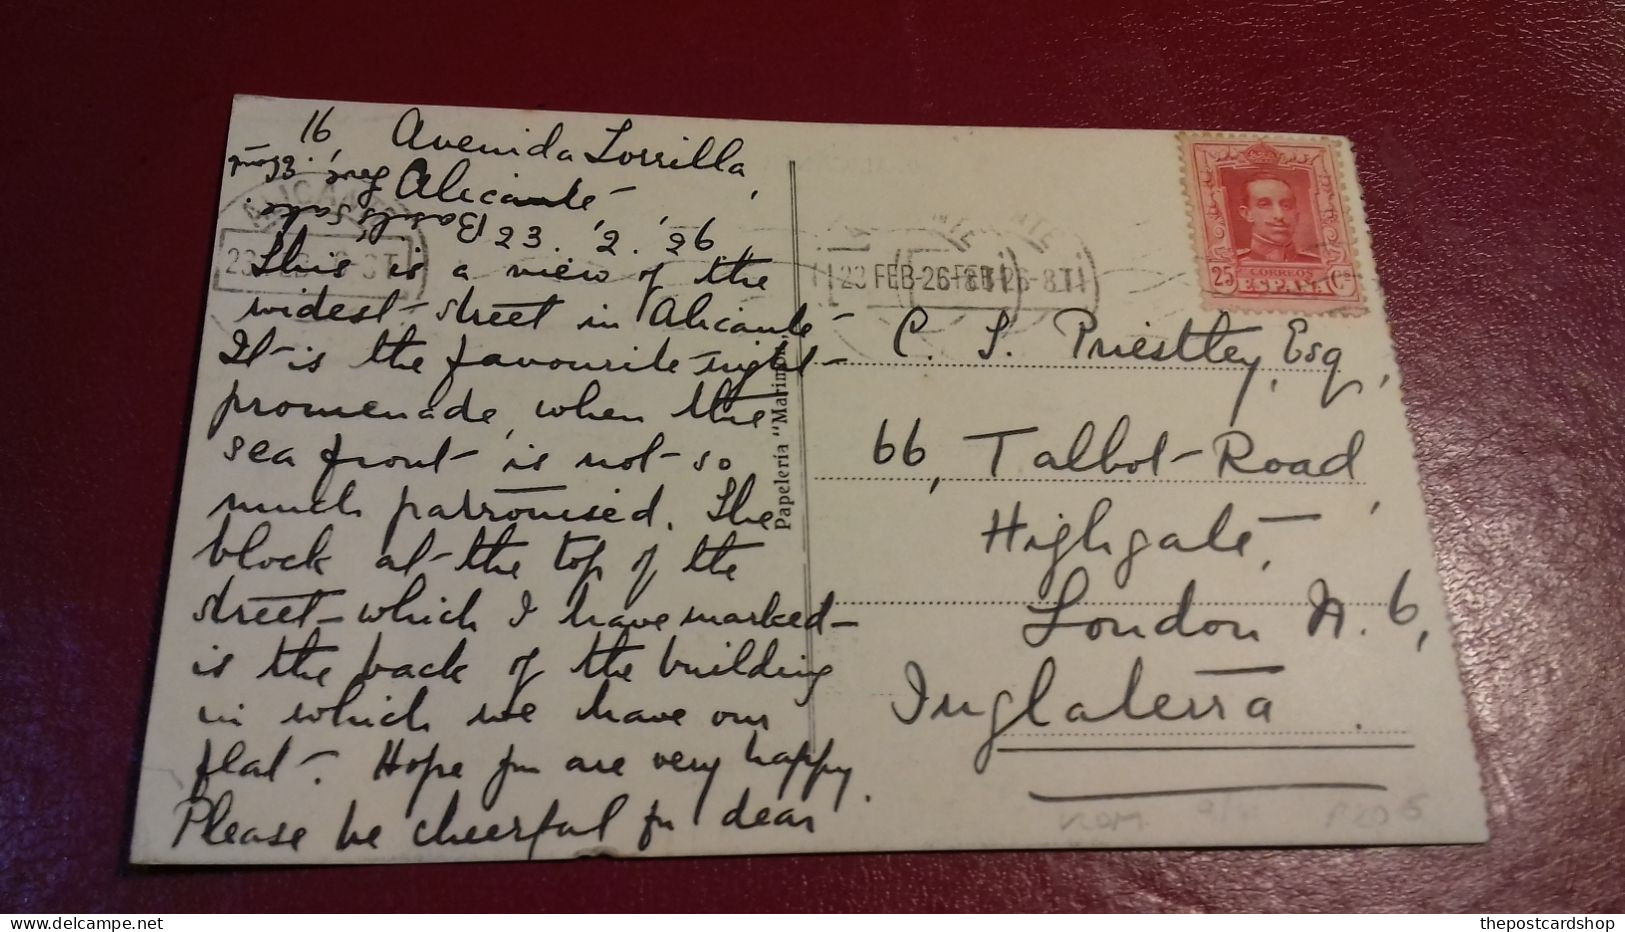 16, Avenida Zorrilla,
Alicante
23. 2. 26
This is a view of the
widest street in Alicante
It is the favourite night
promenade, when the
sea front is not so
much patronised. The
block at the top of the
street – which I have marked –
is the back of the building
in which we have our
flat. Hope you are very happy.
Please be cheerful for dear
Basil's sake.
Papeleria "Marimon"
23 FEB-26
FEB 26-8.T
25 CORREOS Cs
ESPAÑA
C. S. Priestley, Esq,
66, Talbot Road,
Highgate,
London N. 6,
Inglaterra.
thepostcardshop